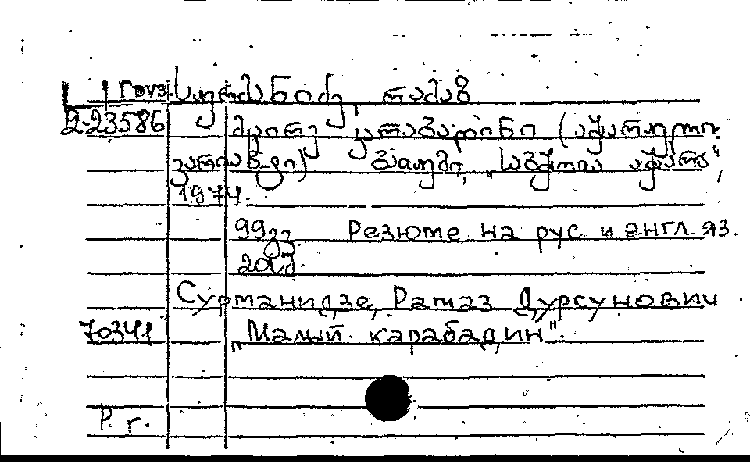 Груз. სურმანიძე, რამაზ
2-23586 მცირე კარაბადინი (აჭარული
ვარიანტი) ბათუმი, „საბჭოთა აჭარა",
1974.
99 გვ. Резюме на рус. и англ. яз.
Сурманидзе, Рамаз Дурсунович
70341 „Малый карабадин".
Р. г.